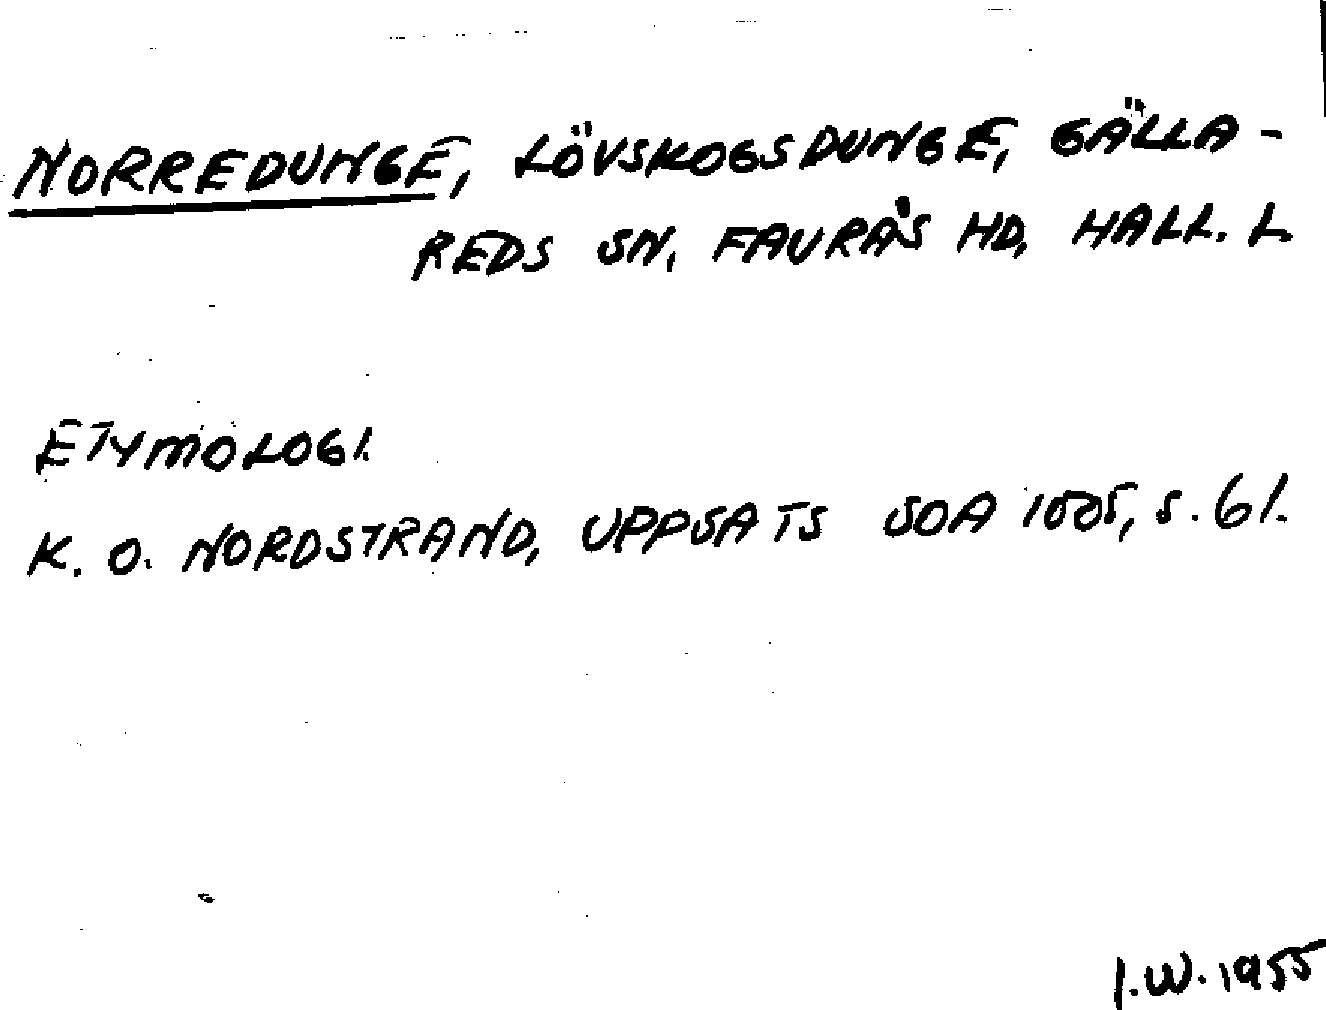 NORREDUNGE, LÖVSKOGSDUNGE, GÄLLA-
REDS SN, FAURÅS HD, HALL. L.
ETYMOLOGI.
K. O. NORDSTRAND, UPPSATS SOA 1505, S. 61.
I.W. 1955